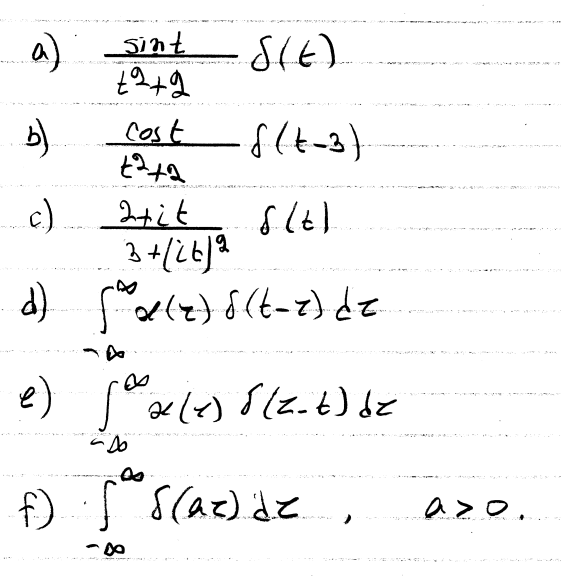 a) \frac{sin t}{t^2+2} δ(t)
b) \frac{cos t}{t^2+2} δ(t-3)
c) \frac{2+it}{3+(it)^2} δ(t)
d) ∫_{-∞}^{∞} x(τ) δ(t-τ) dτ
e) ∫_{-∞}^{∞} x(τ) δ(τ-t) dτ
f) ∫_{-∞}^{∞} δ(aτ) dτ , a>0.